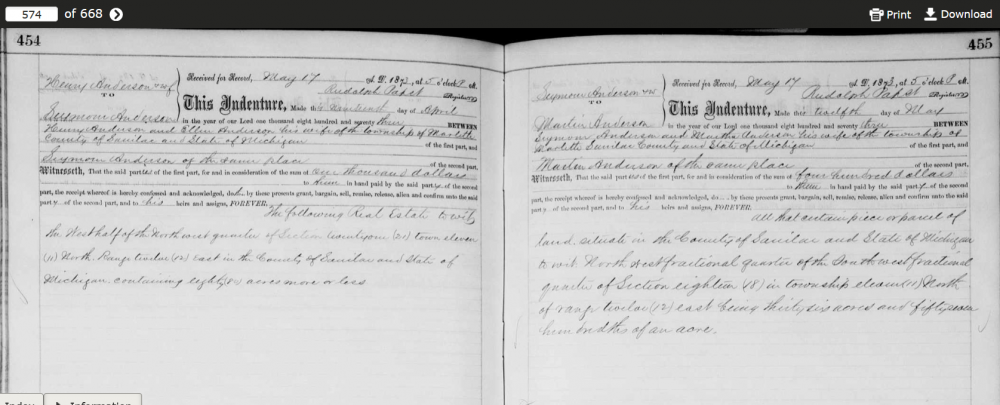 574 of 668
Print Download
454
Henry Anderson & wf
TO
Seymore Anderson
Received for Record, May 17 A. D. 1873, at 5 o'clock P. M.
Rudolph Papst
Register
This Indenture, Made this day of April
in the year of our Lord one thousand eight hundred and seventy three BETWEEN
Henry Anderson and Ellen Anderson his wife of the township of
County of Sanilac and State of Michigan of the first part, and
Seymore Anderson of the same place of the second part,
Witnesseth, That the said parties of the first part, for and in consideration of the sum of One thousand dollars
to him in hand paid by the said party of the second
part, the receipt whereof is hereby confessed and acknowledged, do by these presents grant, bargain, sell, remise, release, alien and confirm unto the said
party of the second part, and to his heirs and assigns, FOREVER.
The following Real Estate to wit,
the West half of the North west quarter of Section twenty one (21) town eleven
(11) North Range twelve (12) east in the County of Sanilac and State of
Michigan containing eighty (80) acres more or less
455
Seymore Anderson & wf
TO
Martin Anderson
Received for Record, May 17 A. D. 1873, at 5 o'clock P. M.
Rudolph Papst
Register
This Indenture, Made this twelfth day of May
in the year of our Lord one thousand eight hundred and seventy three BETWEEN
Seymore Anderson and Martha Anderson his wife of the township of
Sanilac County and State of Michigan of the first part, and
Martin Anderson of the same place of the second part,
Witnesseth, That the said parties of the first part, for and in consideration of the sum of four hundred dollars
to them in hand paid by the said party of the second
part, the receipt whereof is hereby confessed and acknowledged, do by these presents grant, bargain, sell, remise, release, alien and confirm unto the said
party of the second part, and to his heirs and assigns, FOREVER.
All that certain piece or parcel of
land, situate in the County of Sanilac and State of Michigan
to wit North west fractional quarter of the South west fractional
quarter of Section eighteen (18) in township eleven (11) North
of range twelve (12) east being thirty six acres and fifty seven
hundredths of an acre.
Index Information